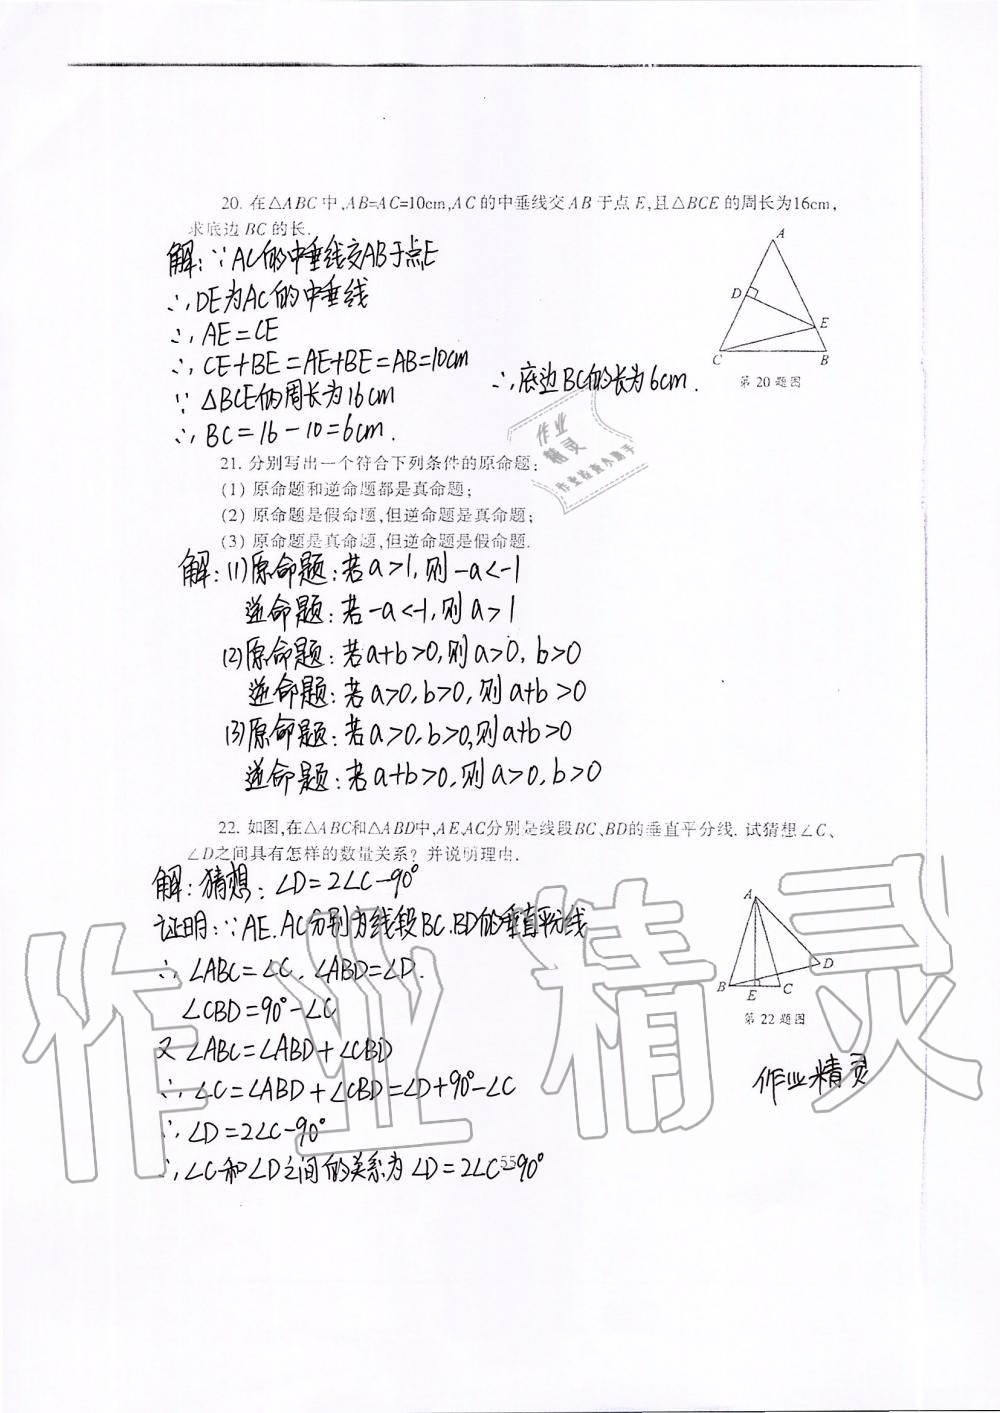 20. 在△ABC中,AB=AC=10cm,AC的中垂线交AB于点E,且△BCE的周长为16cm,
求底边BC的长.
解:∵AC的中垂线交AB于点E
∴DE为AC的中垂线
∴AE=CE
∴CE+BE=AE+BE=AB=10cm
∵△BCE的周长为16cm
∴BC=16-10=6cm.
∴底边BC的长为6cm.
A
D
E
C
B
第20题图
作业
精灵
作业检查小助手
21. 分别写出一个符合下列条件的原命题:
(1) 原命题和逆命题都是真命题;
(2) 原命题是假命题,但逆命题是真命题;
(3) 原命题是真命题,但逆命题是假命题.
解:(1)原命题:若a>1,则-a<-1
逆命题:若-a<-1,则a>1
(2)原命题:若a+b>0,则a>0,b>0
逆命题:若a>0,b>0,则a+b>0
(3)原命题:若a>0,b>0,则a+b>0
逆命题:若a+b>0,则a>0,b>0
22. 如图,在△ABC和△ABD中,AE,AC分别是线段BC、BD的垂直平分线. 试猜想∠C、
∠D之间具有怎样的数量关系? 并说明理由.
解:猜想:∠D=2∠C-90°
证明:∵AE.AC分别为线段BC.BD的垂直平分线
∴∠ABC=∠C,∠ABD=∠D.
∠CBD=90°-∠C
又∠ABC=∠ABD+∠CBD
∴∠C=∠ABD+∠CBD=∠D+90°-∠C
∴∠D=2∠C-90°
∴∠C和∠D之间的关系为∠D=2∠C-90°
A
D
B
E
C
第22题图
作业精灵
55
作业精灵